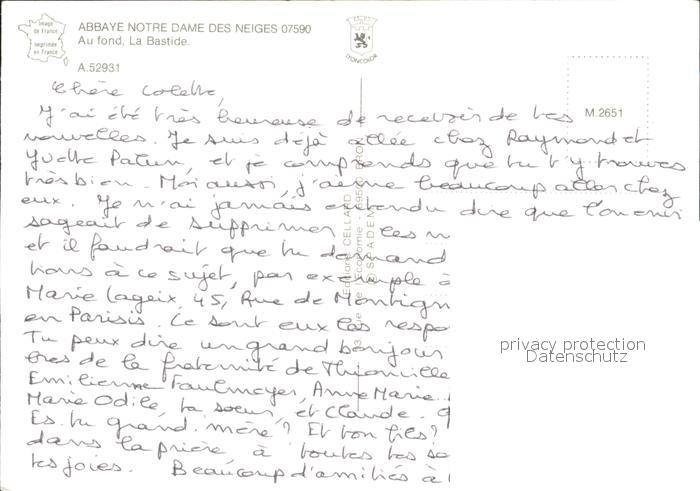 Image
de France
Imprimée
en France
ABBAYE NOTRE DAME DES NEIGES 07590
Au fond, La Bastide.
A.52931
LYONCOLOR
M.2651
Chère Colette,
J'ai été très heureuse de recevoir de tes
nouvelles. Je suis déjà allée chez Raymond et
Yvette Patun, et je comprends que tu t'y trouves
très bien. Moi aussi, j'aime beaucoup aller chez
eux. Je n'ai jamais entendu dire que l'on envi
sageait de supprimer les n
et il faudrait que tu demand
tions à ce sujet, par exemple à
Marie Lageix, 45, Rue de Montign
en Parisis. Ce sont eux les respo
Tu peux dire un grand bonjour
bres de la fraternité de Thionville
Emilienne Faulmeyer, Anne Marie
Marie Odile, ta soeur, et Claude.
Es-tu grand-mère? Et ton fils?
dans la prière à toutes tes
tes joies. Beaucoup d'amitiés à
Editions CELLARD
privacy protection
Datenschutz